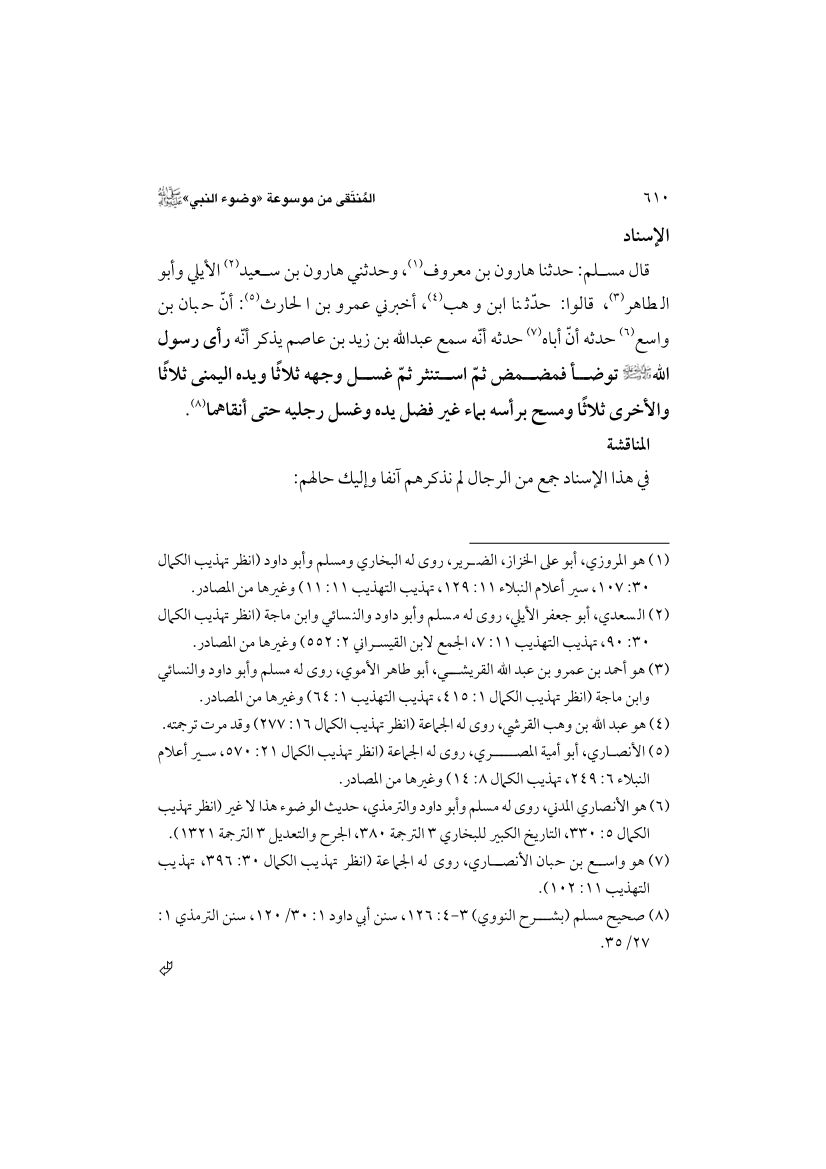 ٦١٠ المُنتَقى من موسوعة «وضوء النبي» ﷺ
الإسناد
قال مسلم: حدثنا هارون بن معروف(١)، وحدثني هارون بن سعيد(٢) الأيلي وأبو
الطاهر(٣)، قالوا: حدّثنا ابن وهب(٤)، أخبرني عمرو بن الحارث(٥): أنّ حبان بن
واسع(٦) حدثه أنّ أباه(٧) حدثه أنّه سمع عبدالله بن زيد بن عاصم يذكر أنّه رأى رسول
الله ﷺ توضأ فمضمض ثمّ استنثر ثمّ غسل وجهه ثلاثًا ويده اليمنى ثلاثًا
والأخرى ثلاثًا ومسح برأسه بماء غير فضل يده وغسل رجليه حتى أنقاهما(٨).
المناقشة
في هذا الإسناد جمع من الرجال لم نذكرهم آنفا وإليك حالهم:
(١) هو المروزي، أبو على الخزاز، الضرير، روى له البخاري ومسلم وأبو داود (انظر تهذيب الكمال
٣٠: ١٠٧، سير أعلام النبلاء ١١: ١٢٩، تهذيب التهذيب ١١: ١١) وغيرها من المصادر.
(٢) السعدي، أبو جعفر الأيلي، روى له مسلم وأبو داود والنسائي وابن ماجة (انظر تهذيب الكمال
٣٠: ٩٠، تهذيب التهذيب ١١: ٧، الجمع لابن القيسراني ٢: ٥٥٢) وغيرها من المصادر.
(٣) هو أحمد بن عمرو بن عبد الله القريشي، أبو طاهر الأموي، روى له مسلم وأبو داود والنسائي
وابن ماجة (انظر تهذيب الكمال ١: ٤١٥، تهذيب التهذيب ١: ٦٤) وغيرها من المصادر.
(٤) هو عبد الله بن وهب القرشي، روى له الجماعة (انظر تهذيب الكمال ١٦: ٢٧٧) وقد مرت ترجمته.
(٥) الأنصاري، أبو أمية المصري، روى له الجماعة (انظر تهذيب الكمال ٢١: ٥٧٠، سير أعلام
النبلاء ٦: ٢٤٩، تهذيب الكمال ٨: ١٤) وغيرها من المصادر.
(٦) هو الأنصاري المدني، روى له مسلم وأبو داود والترمذي، حديث الوضوء هذا لا غير (انظر تهذيب
الكمال ٥: ٣٣٠، التاريخ الكبير للبخاري ٣ الترجمة ٣٨٠، الجرح والتعديل ٣ الترجمة ١٣٢١).
(٧) هو واسع بن حبان الأنصاري، روى له الجماعة (انظر تهذيب الكمال ٣٠: ٣٩٦، تهذيب
التهذيب ١١: ١٠٢).
(٨) صحيح مسلم (بشرح النووي) ٣-٤: ١٢٦، سنن أبي داود ١: ٣٠/ ١٢٠، سنن الترمذي ١:
٢٧/ ٣٥.